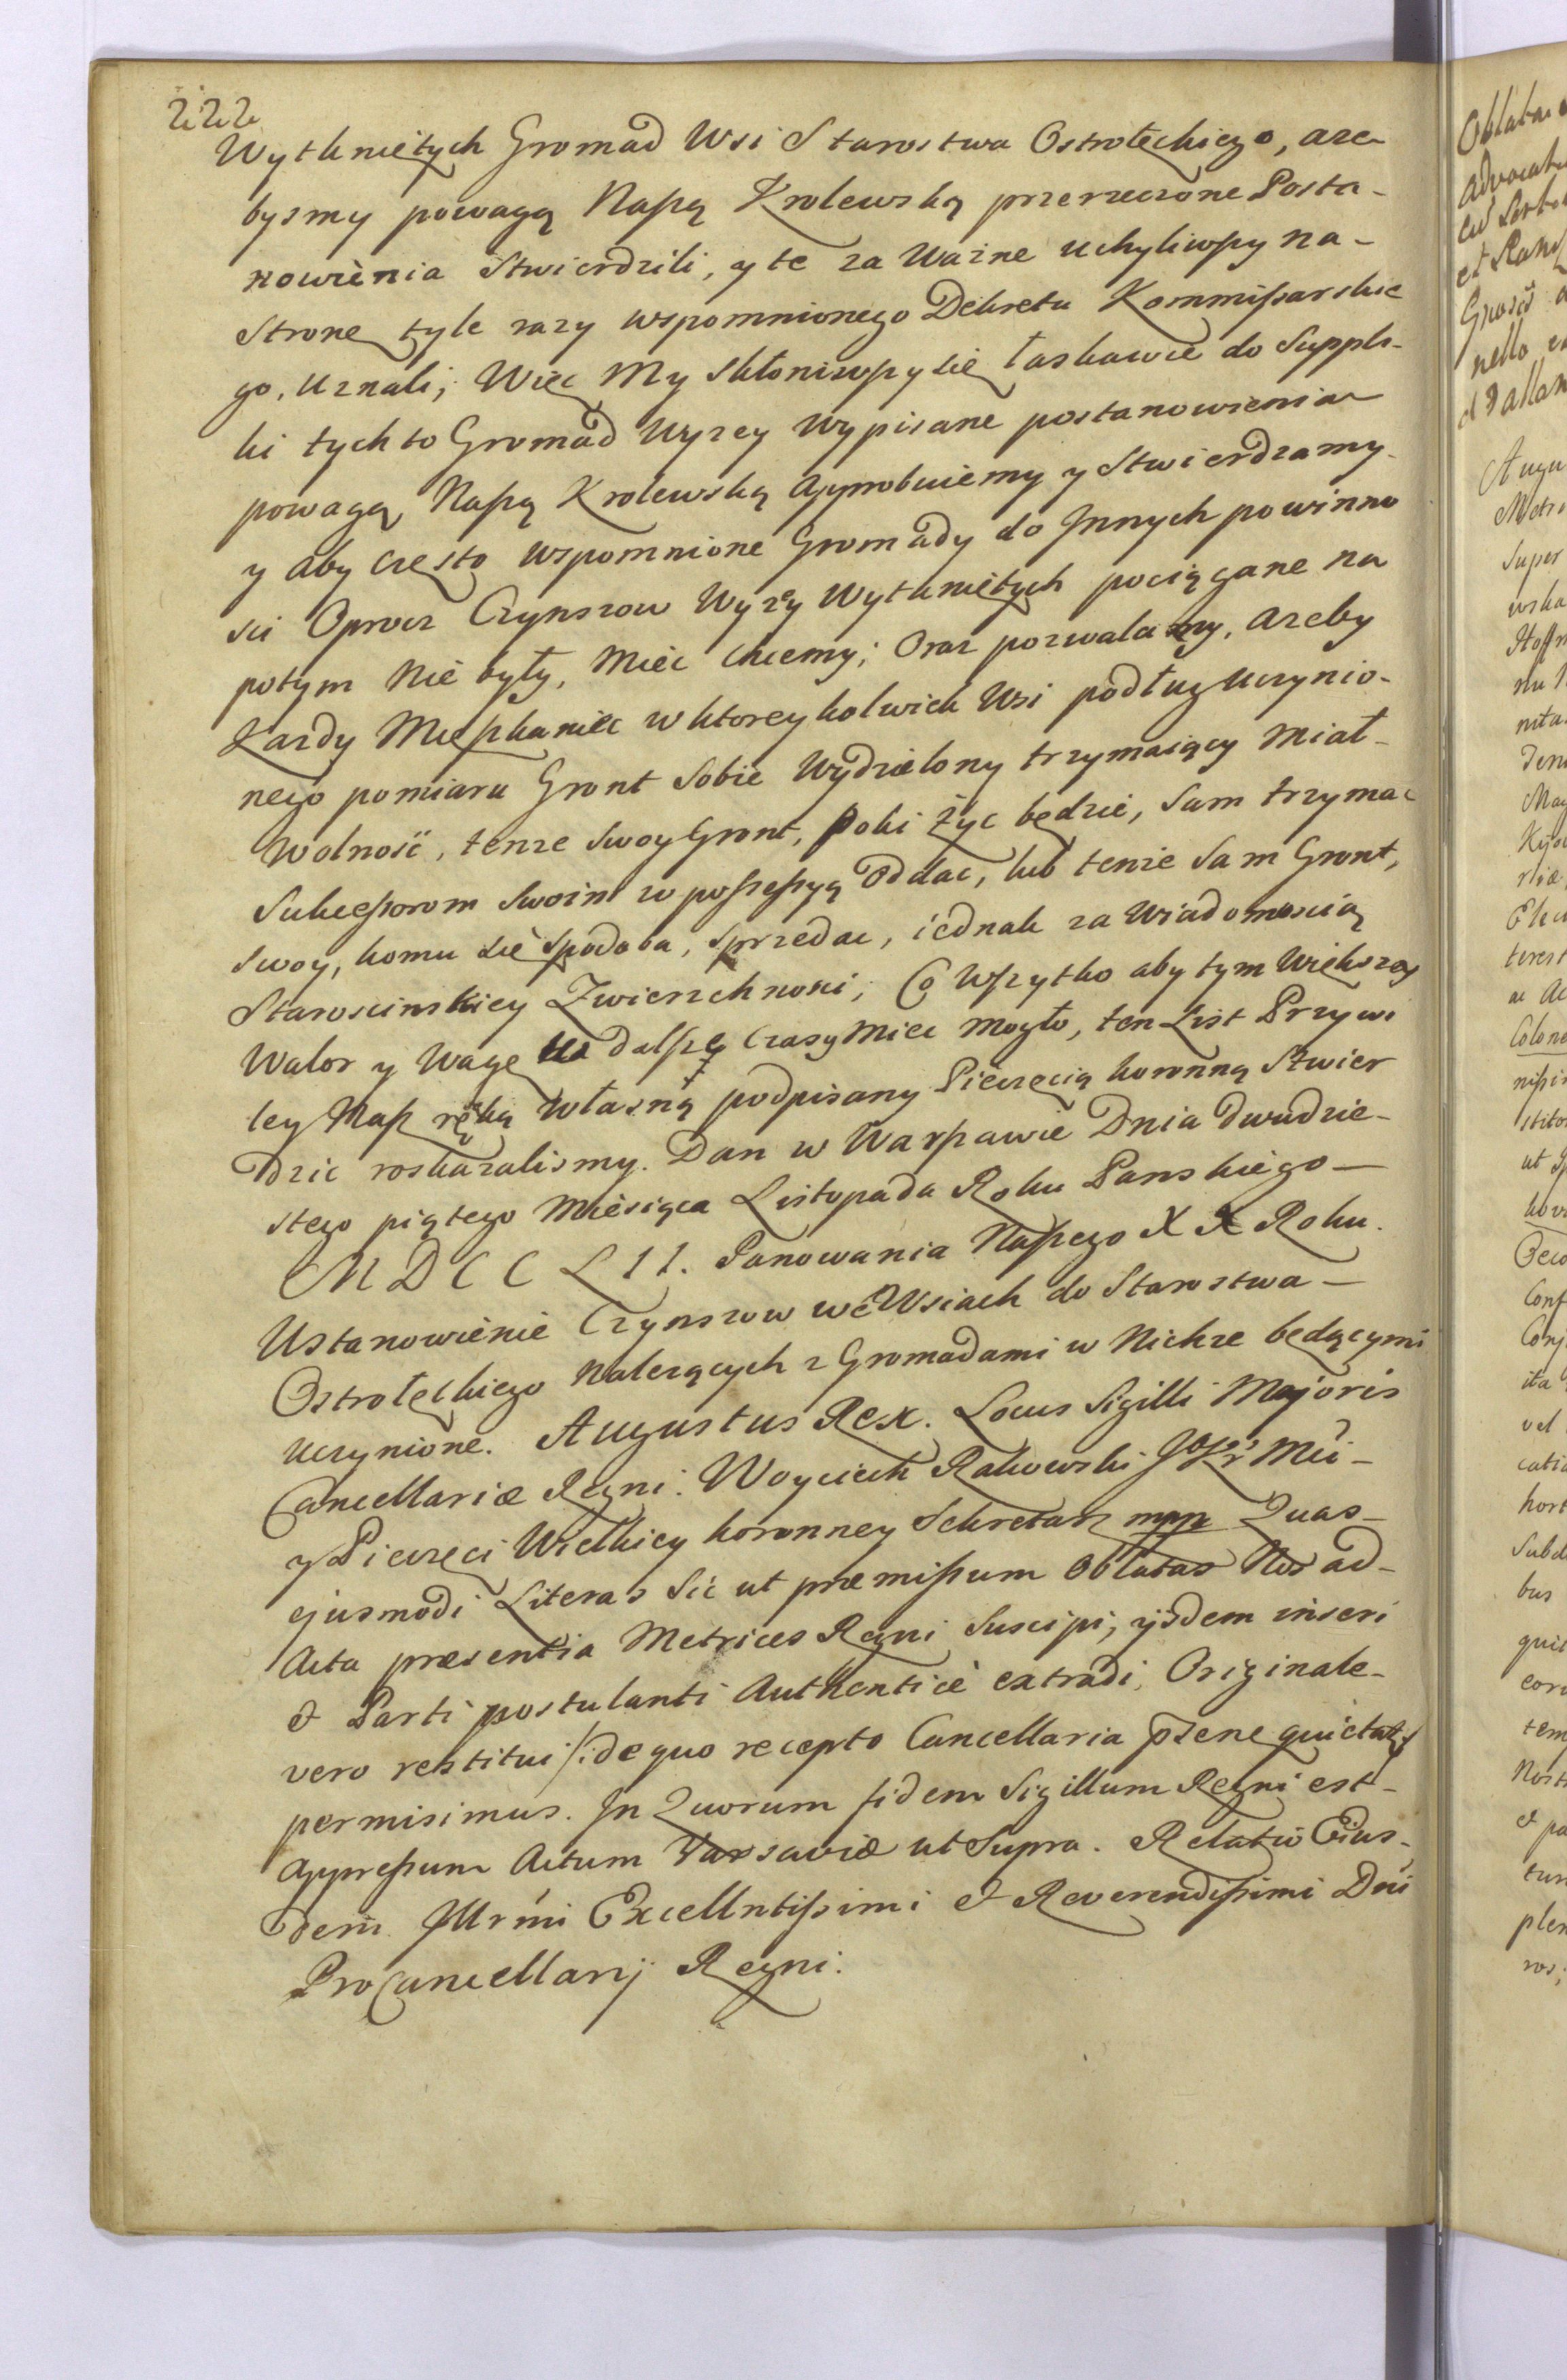 222
Wytkniętych Gromad Wsi Starostwa Ostrołęckiego, aże
bysmy powagą Naszą Krolewską przerzeczone Posta-
nowienia Stwierdzili, y te za Ważne uchyliwszy na-
Stronę tyle razy wspomnionego Dekretu Kommissarskie
go, uznali; Więc My skłoniwszy się łaskawie do Suppli-
ki tychto Gromad Wyzey Wypisane postanowienia
powagą Naszą Krolewską Approbuiemy y Stwierdzamy
y aby często wspomnione Gromady do Innych powinno
sci Oprocz Czynszow Wyzey Wytkniętych pociągane na
potym Nie były, Miec chcemy; Oraz pozwalamy, azeby
Kazdy Mieszkaniec w ktoreykolwiek Wsi podług uczynio-
nego pomiaru Gront Sobie Wydzielony trzymaiący Miał-
Wolność, tenze Swoy Gront, Poki Życ będzie, Sam trzymac
Sukcessorom Swoim w possessyą Oddac, lub tenze Sam Gront,
Swoy, komu się spodoba, sprzedac, iednak za Wiadomoscią
Staroscinskiey Zwierzchnosci; Co Wszytko aby tym Większey
Walor y Wagę na dalsze Czasy Miec Mogło, ten List Przywi
ley Nasz ręką Własną podpisany Pieczęcią koronną Stwier
dzic roskazalismy. Dan w Warszawie Dnia dwudzie-
stego piątego Miesiąca Listopada Roku Panskiego-
MDCCLII. Panowania Naszego XX Roku.
Ustanowienie Czynszow we Wsiach do Starostwa-
Ostrołęckiego Nalezących z Gromadami w Nichze będącymi
uczynione. Augustus Rex. Locus Sigilli Majoris
Cancellariæ Regni. Woyciech Rakowski JKr Mci-
y Pieczęci Wielkiey koronney Sekretarz mpp Quas-
ejusmodi Literas Sic ut præmissum Oblatas Nos ad-
Acta præsentia Metrices Regni Suscipi, ijsdem inseri
et Parti postulanti Authenticè extradi, Originale-
vero restitui /:de quo recepto Cancellaria præne quietat:/
permisimus. In Quorum fidem Sigillum Regni est-
appressum Actum Varsaviæ ut Supra. Relatio Eius-
dem Illrmi Excellntissimi et Reverendissimi Dni
ProCancellarij Regni.